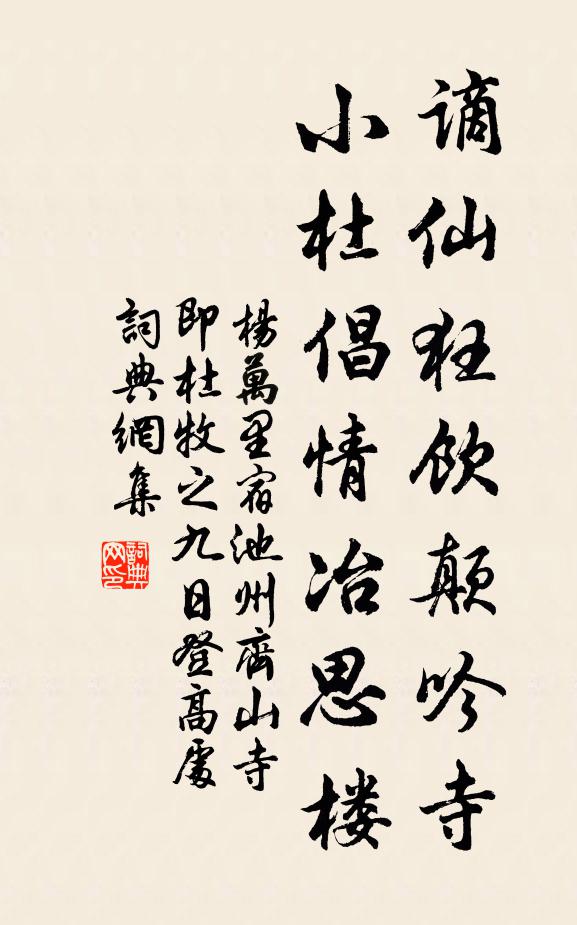 谪仙狂饮颠吟寺
小杜倡情冶思楼
楊萬里宿池州齊山寺
即杜牧之九日登高處
詞典網集
詞典网印